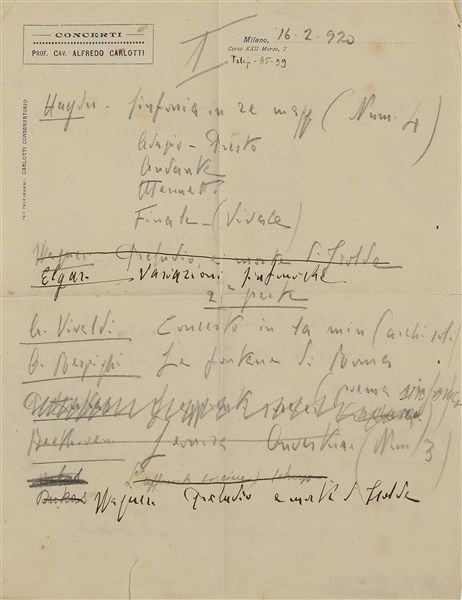 CONCERTI
PROF. CAV. ALFREDO CARLOTTI
Milano, 16-2-920
Corso XXII Marzo, 7
Telef-85-99
I
PER TELEGRAMMI: CARLOTTI CONSERVATORIO
Haydn - Sinfonia in re magg (Num. 4)
Adagio - Presto
Andante
Menuetto
Finale - (Vivace)
Wagner Preludio e morte di Isolda
Elgar - Variazioni sinfoniche
2ª parte
A. Vivaldi Concerto in la min (archi soli)
O. Respighi Le fontane di Roma
(Poema
Beethoven Leonora Ouverture (Num 3)
Wagner Preludio e morte di Isolda